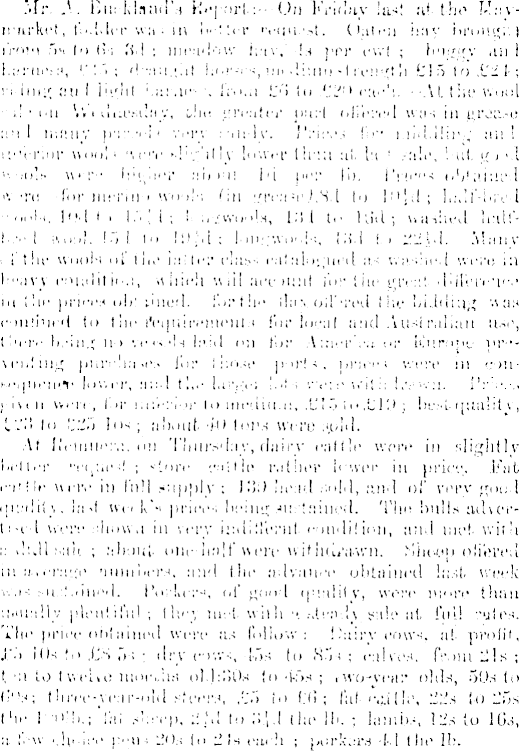 Mr. A. Buckland's Report:—On Friday last at the Hay-
market, fodder was in better request. Oaten hay brought
from 5s to 6s 3d; meadow hay, 4s per cwt; buggy and
harness, draught horses, medium strength £15 to £24;
riding and light harness, from £6 to £20 each. At the wool
sale on Wednesday, the greater part offered was in grease
and many parcels very sandy. Prices for middling and
inferior wools were slightly lower than at last sale, but good
wools were higher about 1d per lb. Prices obtained
were for merino wools (in grease) 8d to half-bred
wools, 10d to longwools, 13d to 16d; washed half-
bred wool, 15d to longwools, 18d to 22½d. Many
of the wools of the latter class catalogued as washed were in
heavy condition, which will account for the great difference
in the prices obtained. For the flax offered the bidding was
confined to the requirements for local and Australian use,
there being no vessels laid on for America or Europe pre-
venting purchases for those ports, prices were in con-
sequence lower, and the larger lots were withdrawn. Prices
given were, for inferior to medium, £15 to £19; best quality,
£23 to £25 10s; about 40 tons were sold.
At Remuera, on Thursday, dairy cattle were in slightly
better request; store cattle rather lower in price. Fat
cattle were in full supply; 139 head sold, and of very good
quality, last week's prices being sustained. The bulls adver-
tised were shown in very indifferent condition, and met with
a dull sale; about one-half were withdrawn. Sheep offered
in average numbers, and the advance obtained last week
was sustained. Porkers, of good quality, were more than
usually plentiful; they met with a steady sale at full rates.
The price obtained were as follow: Dairy cows, at profit,
£5 10s to £8 5s; dry cows, 45s to 85s; calves, from 21s;
ten to twelve months old 30s to 45s; two-year olds, 50s to
60s; three-year-old steers, £5 to £6; fat cattle, 22s to 25s
the 100lb.; fat sheep, 2½d to 3½d the lb.; lambs, 12s to 16s,
a few choice pens 20s to 21s each; porkers 4d the lb.